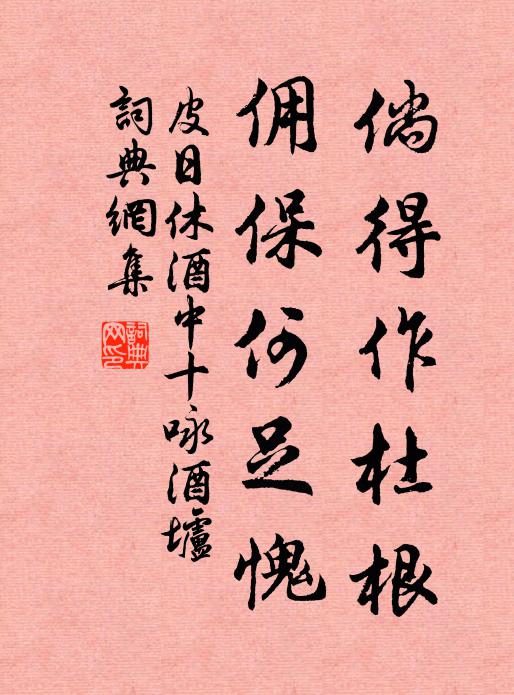 倘得作杜根
佣保何足愧
皮日休酒中十咏酒壚
詞典網集
詞典網印